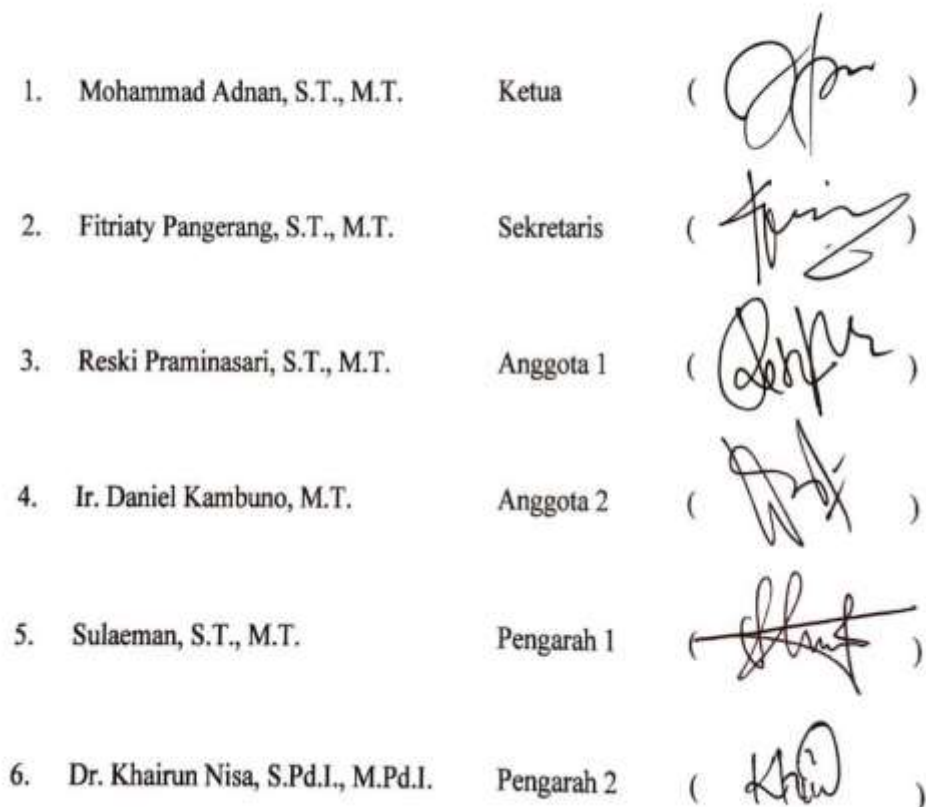 1. Mohammad Adnan, S.T., M.T. Ketua ( )
2. Fitriaty Pangerang, S.T., M.T. Sekretaris ( )
3. Reski Praminasari, S.T., M.T. Anggota 1 ( )
4. Ir. Daniel Kambuno, M.T. Anggota 2 ( )
5. Sulaeman, S.T., M.T. Pengarah 1 ( )
6. Dr. Khairun Nisa, S.Pd.I., M.Pd.I. Pengarah 2 ( )